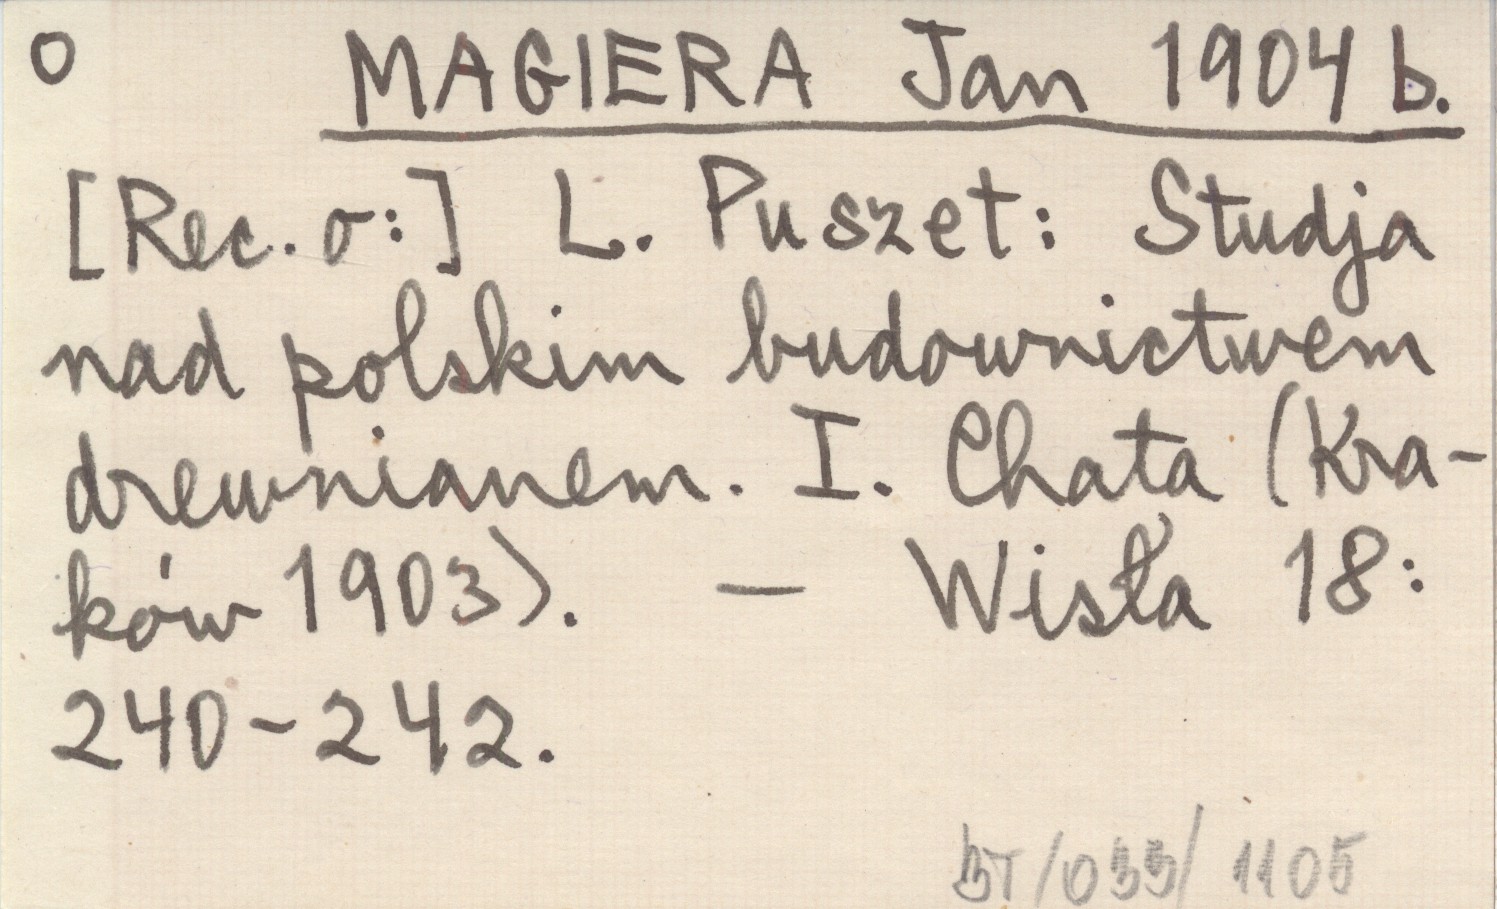 O MAGIERA Jan 1904 b.
[Rec. o:] L. Puszet: Studja
nad polskim budownictwem
drewnianem. I. Chata (Kra-
ków 1903). — Wisła 18:
240-242.
/ 1105